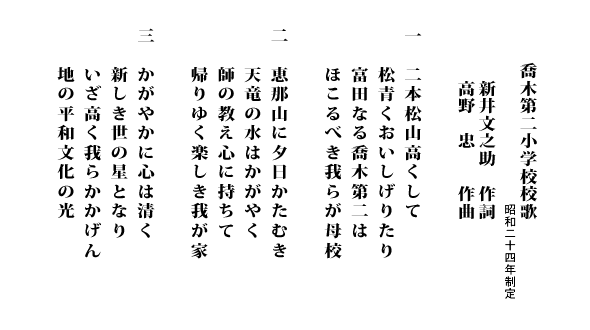 喬木第二小学校校歌
昭和二十四年制定
新井文之助 作詞
高野 忠 作曲
一 二本松山高くして
松青くおいしげりたり
富田なる喬木第二は
ほこるべき我らが母校
二 恵那山に夕日かたむき
天竜の水はかがやく
師の教え心に持ちて
帰りゆく楽しき我が家
三 かがやかに心は清く
新しき世の星となり
いざ高く我らかかげん
地の平和文化の光